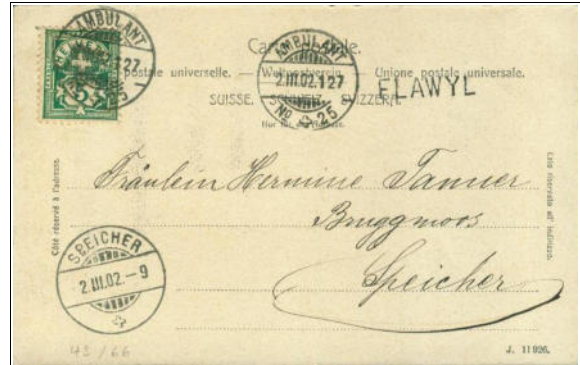 AMBULANT
HELVETIA
5
AMBULANT
2.III.02.127
No 25
FLAWYL
postale universelle. — Weltpostverein. — Unione postale universale.
SUISSE. SCHWEIZ. SVIZZERA.
Nur für die Adresse.
Côté réservé à l'adresse.
Lato riservato all' indirizzo.
Fräulein Hermine Tanner
Bruggmoos
Speicher
SPEICHER
2.III.02.-9
43/66
J. 11926.